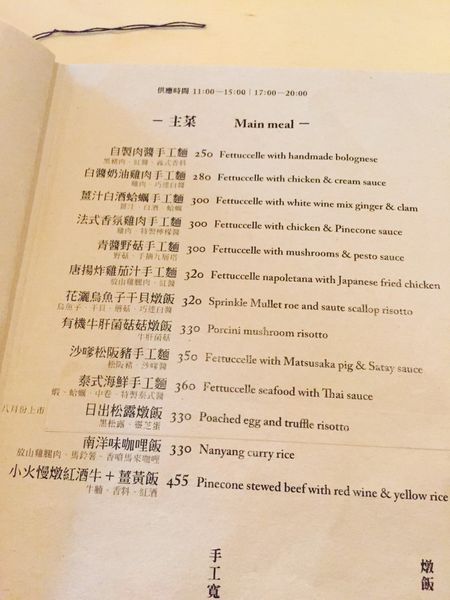 供應時間 11:00—15:00 | 17:00—20:00
— 主菜 Main meal —
自製肉醬手工麵 250 Fettuccelle with handmade bolognese
黑豬肉、紅醬、義式香料
白醬奶油雞肉手工麵 280 Fettuccelle with chicken & cream sauce
雞肉、巧達白醬
薑汁白酒蛤蠣手工麵 300 Fettuccelle with white wine mix ginger & clam
薑汁、白酒、蛤蠣
法式香氛雞肉手工麵 300 Fettuccelle with chicken & Pinecone sauce
雞肉、特製檸檬醬
青醬野菇手工麵 300 Fettuccelle with mushrooms & pesto sauce
野菇、手摘九層塔
唐揚炸雞茄汁手工麵 320 Fettuccelle napoletana with Japanese fried chicken
放山雞腿肉、紅醬
花灑烏魚子干貝燉飯 320 Sprinkle Mullet roe and saute scallop risotto
烏魚子、干貝、蘑菇、巧達白醬
有機牛肝菌菇菇燉飯 330 Porcini mushroom risotto
牛肝菌菇
沙嗲松阪豬手工麵 350 Fettuccelle with Matsusaka pig & Satay sauce
松阪豬、沙嗲醬
泰式海鮮手工麵 360 Fettuccelle seafood with Thai sauce
蝦、蛤蠣、中卷、特製泰式醬
八月份上市 日出松露燉飯 330 Poached egg and truffle risotto
黑松露、靈芝蛋
南洋味咖哩飯 330 Nanyang curry rice
放山雞腿肉、馬鈴薯、香噴馬來咖哩
小火慢燉紅酒牛+薑黃飯 455 Pinecone stewed beef with red wine & yellow rice
牛腩、香料、紅酒
手工寬
燉飯